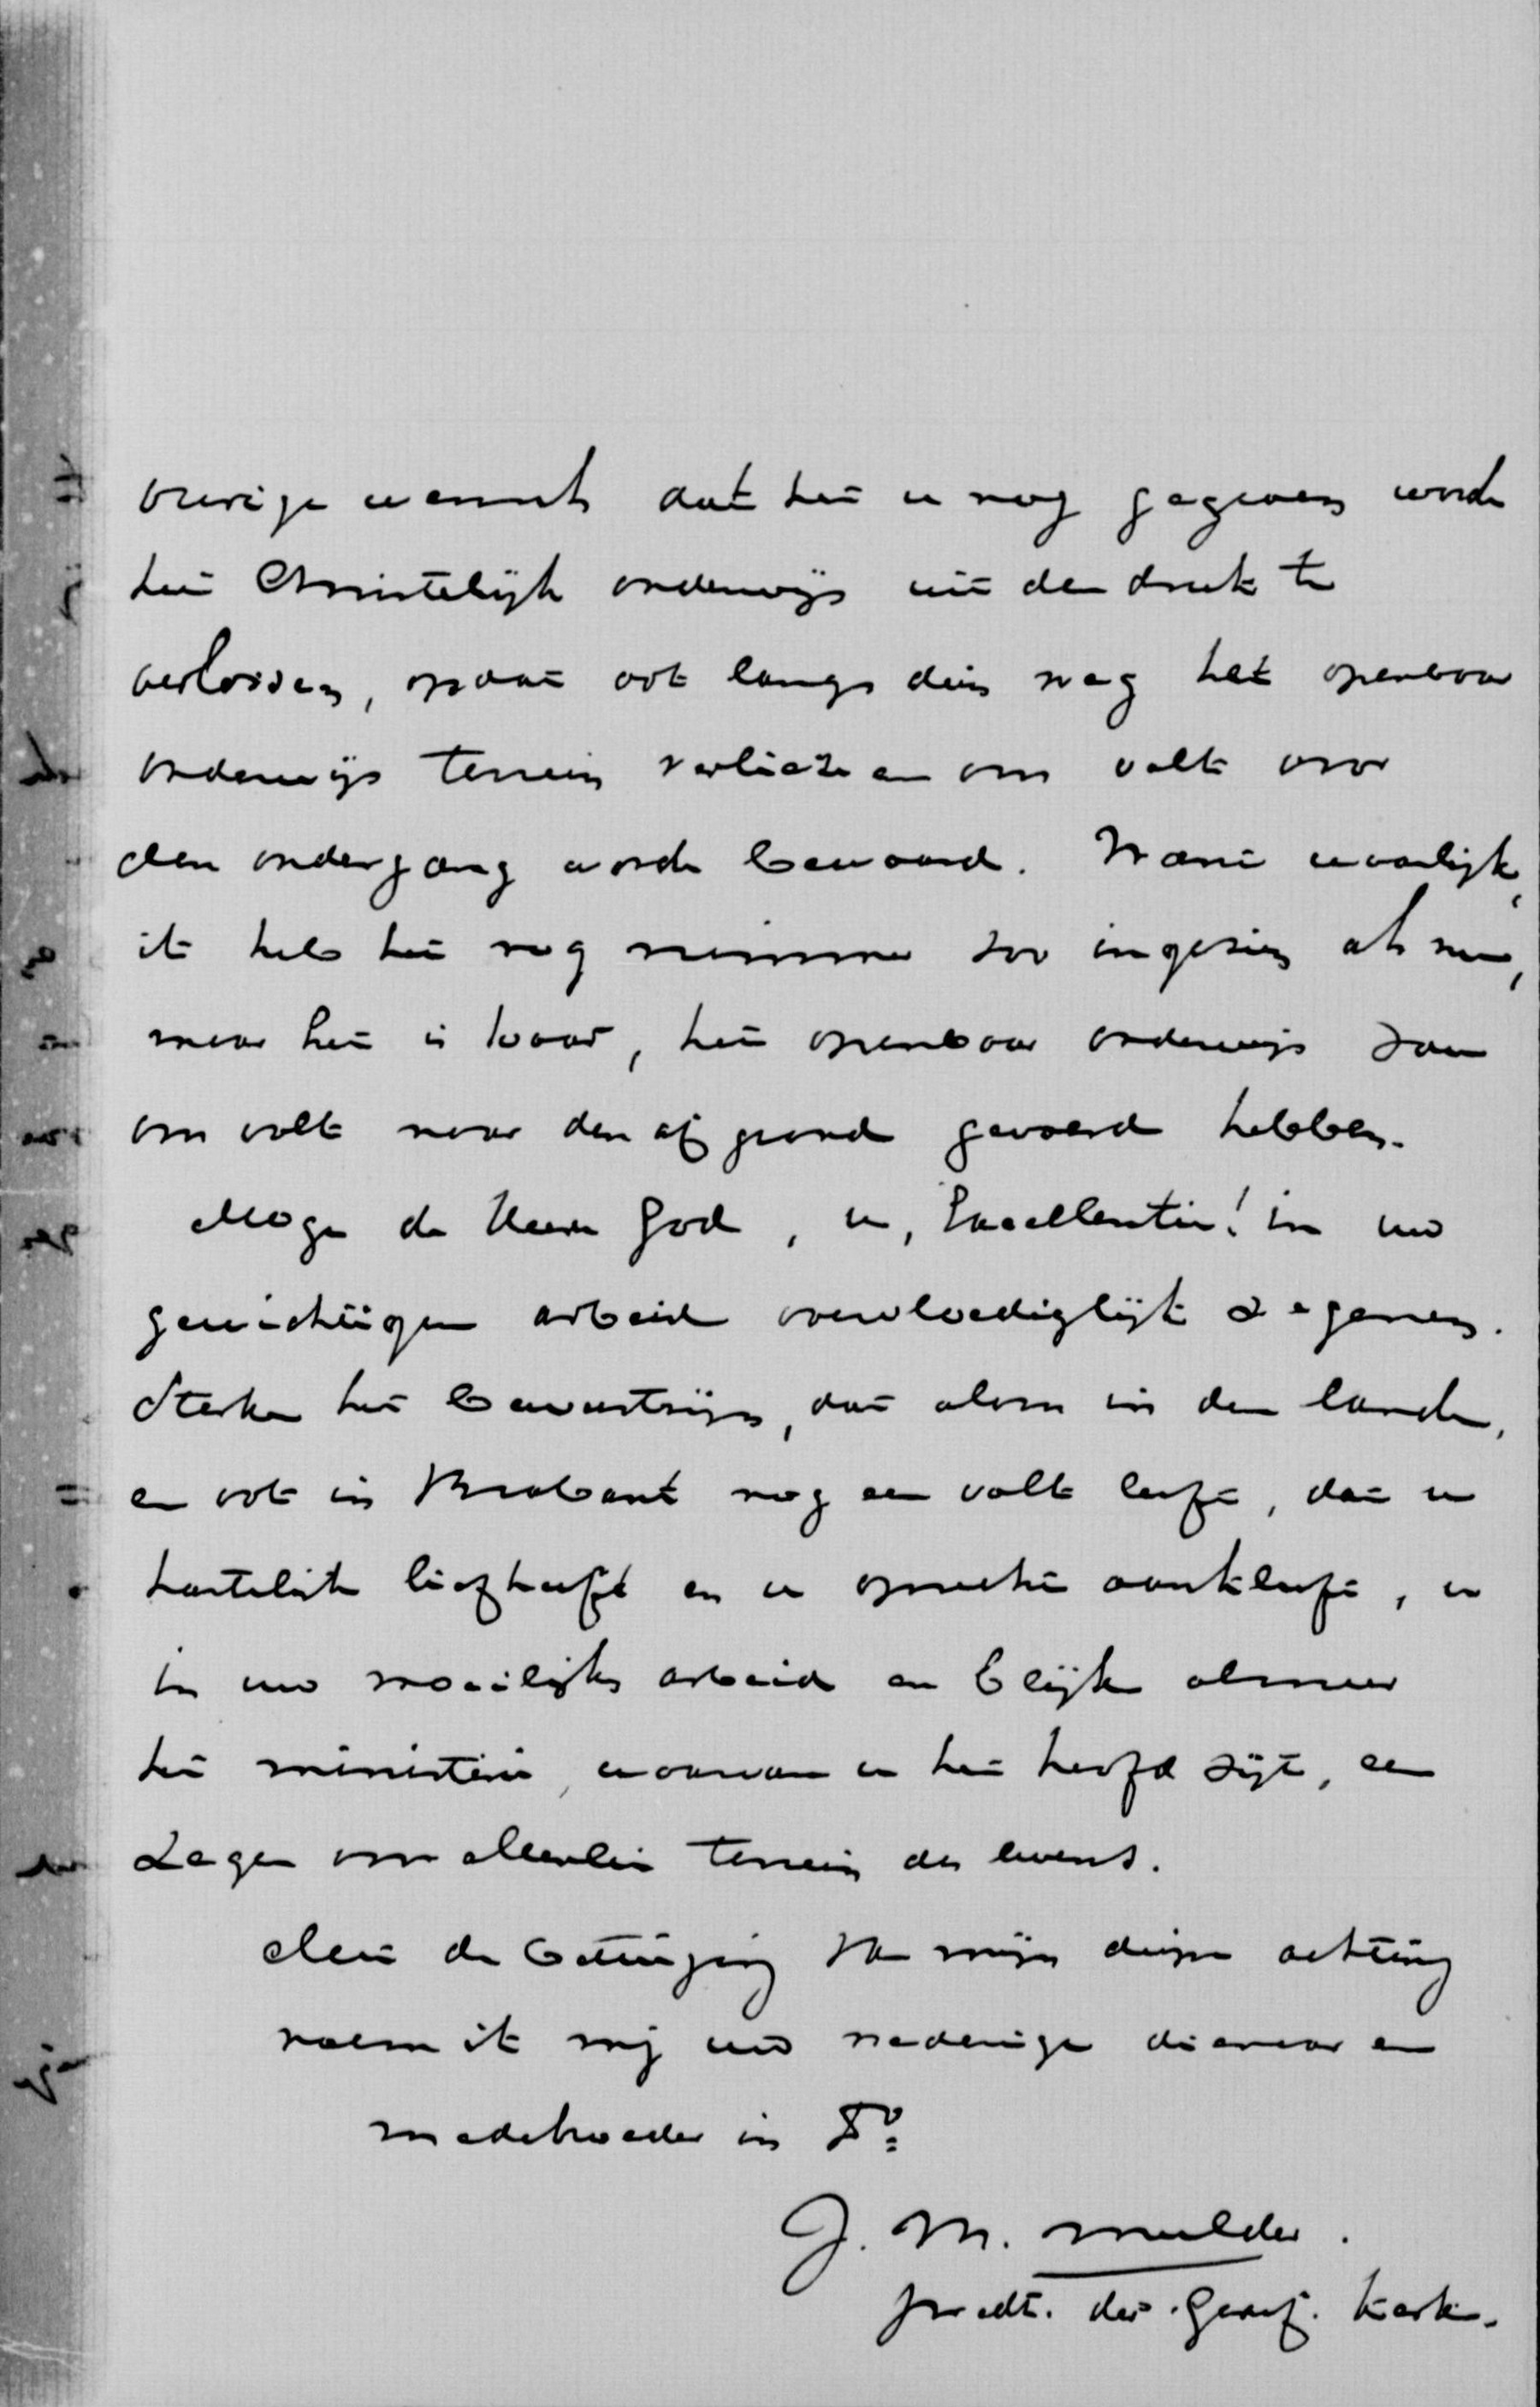 vurige wensch dat het u nog gegeven worde
het Christelijk onderwijs uit den druk te
verlossen, opdat ook langs dien weg het openbaar
onderwijs terrein verlieze en ons volk voor
den ondergang worde bewaard. Want waarlijk,
ik heb het nog nimmer zoo ingezien als nu,
maar het is waar, het openbaar onderwijs zou
ons volk naar den afgrond gevoerd hebben.
Moge de Heere God, u, Excellentie! in uw
gewichtigen arbeid overvloediglijk zegenen.
Sterke het bewustzijn, dat alom in den lande,
en ook in Brabant nog een volk leeft, dat u
hartelijk liefheeft en u oprecht aankleeft, u
in uw moeilijken arbeid en blijke alsmeer
het ministerie, waarvan u het hoofd zijt, een
zegen voor allerlei terrein des levens.
Met de betuiging van mijn diepe achting
noem ik mij uw nederige dienaar en
medebroeder in Xo:
J. M. Mulder.
predt. der Geref. Kerk.